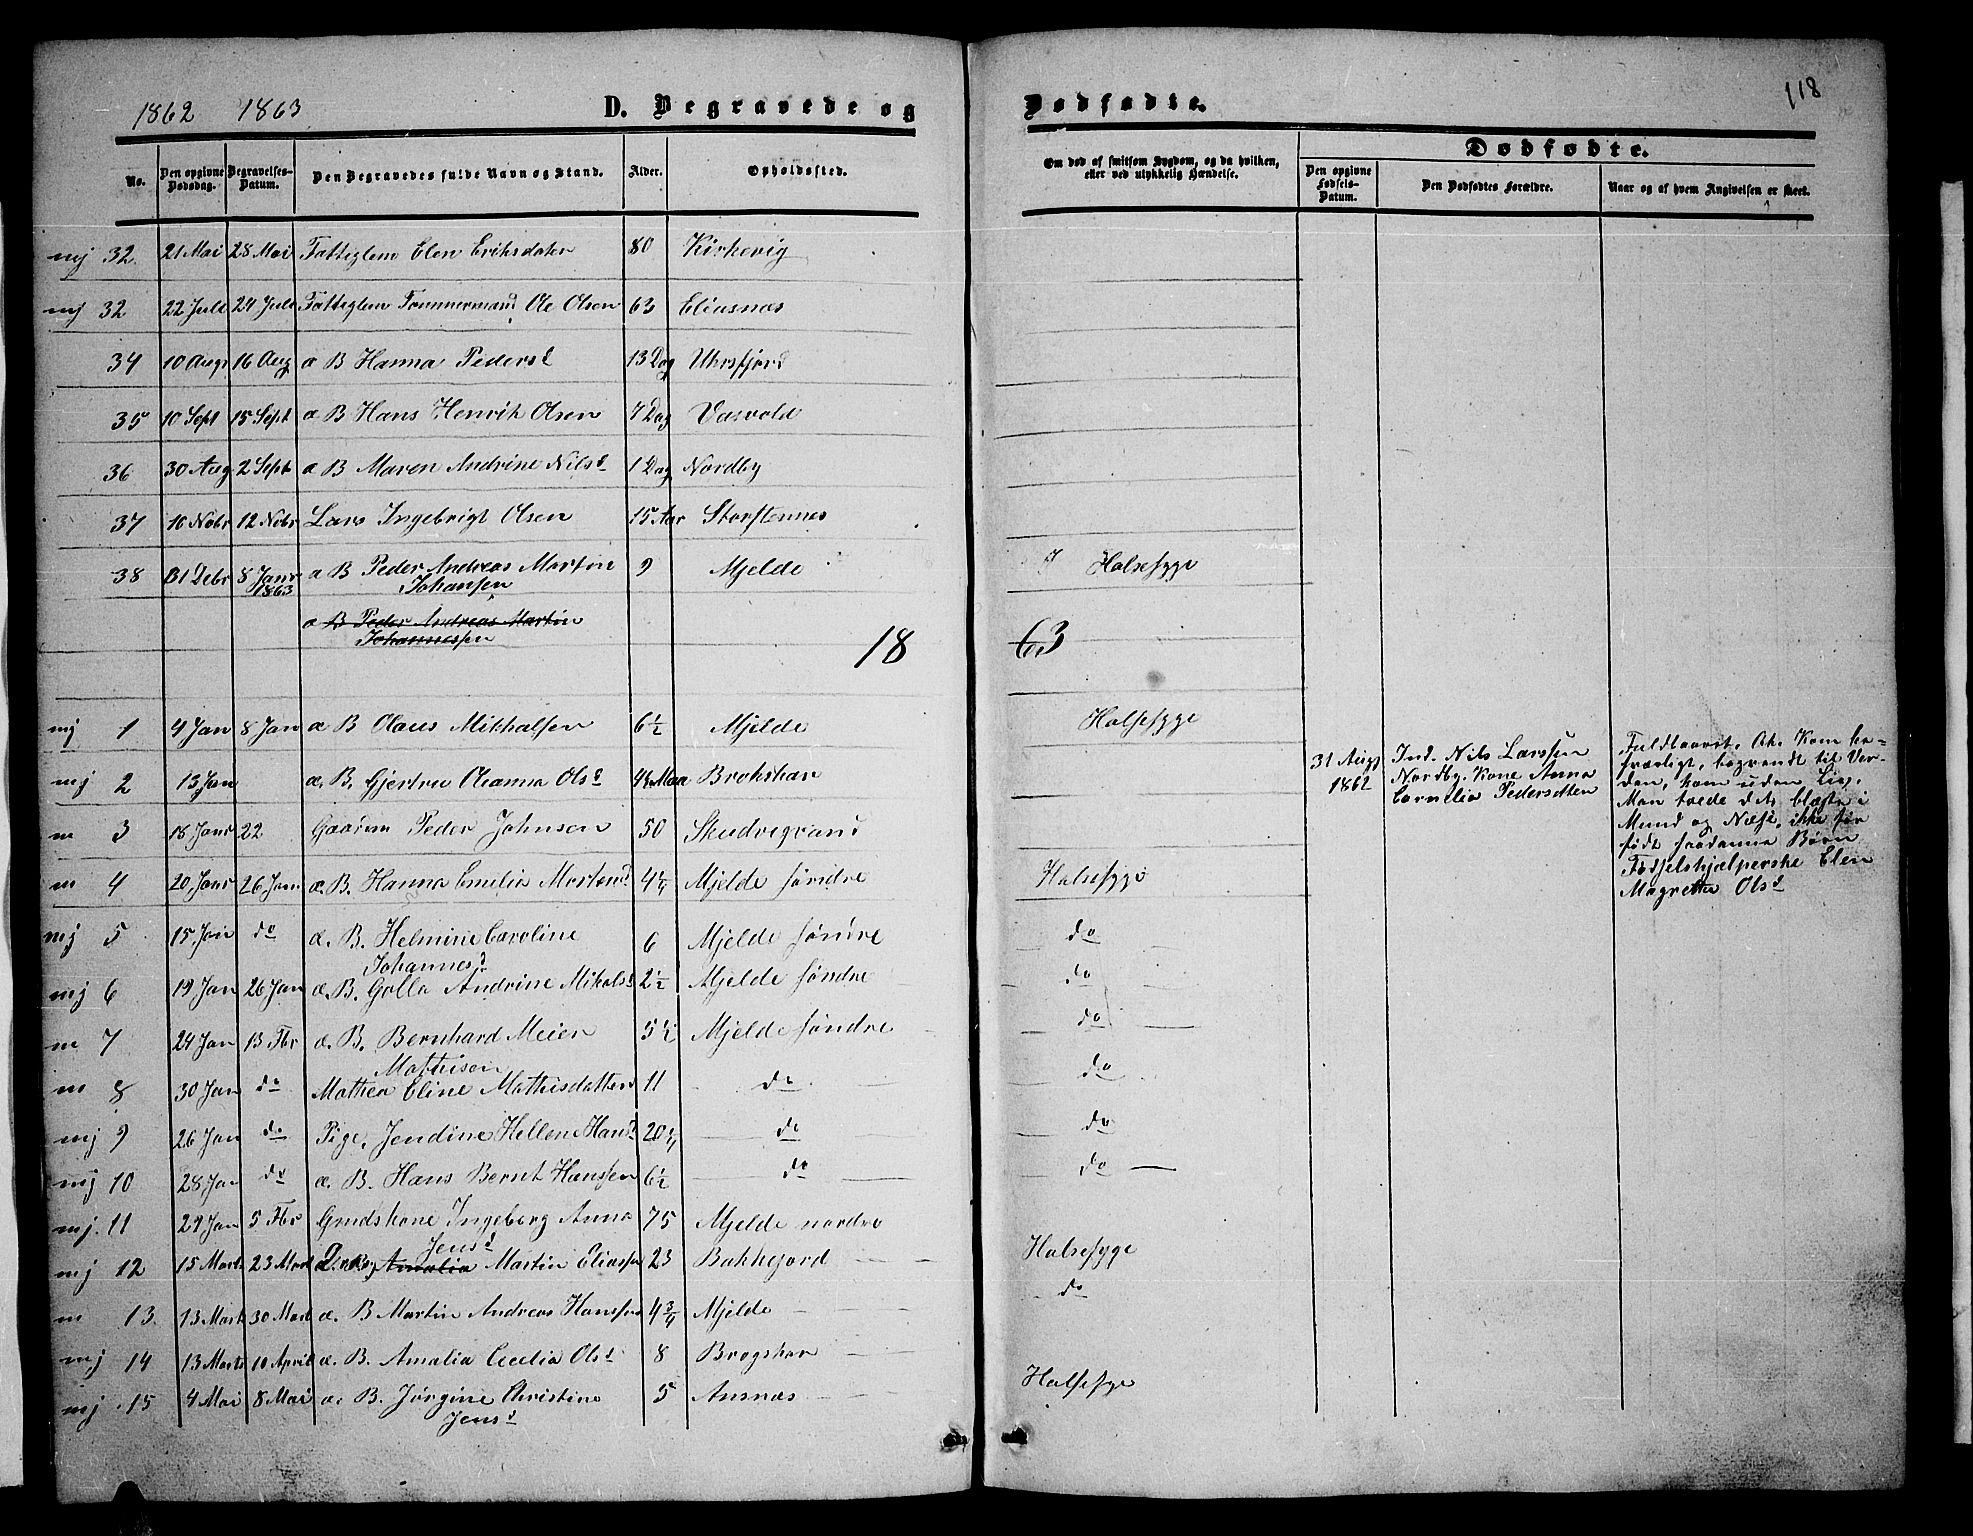 1862 1863 D. Begravede og
Dødfødte. 118
No. Den opgivne Dødsdag. Begravelses-Datum. Den Begravedes fulde Navn og Stand. Alder. Opholdssted.
Om død af smitsom Sygdom, og da hvilken, eller ved ulykkelig Hændelse.
Dødfødte.
Den opgivne Fødsels-Datum. Den Dødfødtes Forældre. Naar og af hvem Angivelsen er skeet.
mj 32 21 Mai 28 Mai Fattiglem Elen Eriksdater 80 Kirkevig
mj 32 22 Juli 24 Juli Fattiglem Tømmermand Ole Olsen 63 Eliasnæs
34 10 Aug 16 Aug æ B Hanna Pedersd 13 Dag Uhrsfjord
35 10 Sept 15 Sept æ B Hans Henrik Olsen 7 Dag Vasvold
36 30 Aug 2 Sept æ B Maren Andrine Nilsd 1 Dag Nordby
37 10 Nobr 12 Nobr Lars Ingebrigt Olsen 15 Aar Storstennes
38 31 Debr 8 Janr 1863 æ B Peder Andreas Martin Johansen 9 Mjelde Halsesyge
æ B Peder Andreas Martin
Johannessen
18 63
mj 1 4 Jan 8 Jan æ B Olaus Mikhalsen 6½ Mjelde Halsesyge
mj 2 13 Jan æ. B. Gjertru Oleanna Olsd Brokskar
m 3 18 Janr 22 Gaardm Peder Johnsen 50 Skudvigvand
m 4 20 Janr 26 Jan æ. B. Hanna Emelia Mortensd 4¼ Mjelde søndre Halsesyge
mj 5 15 Jan do æ. B. Helmine Caroline
Johannesd 6 Mjelde søndre do
mj 6 19 Jan 26 Jan æ. B. Golla Andrine Mikalsd 2½ Mjelde søndre do
m 7 24 Jan 13 Fbr æ. B. Bernhard Meier
Mathisen 5½ Mjelde søndre do
m 8 30 Jan do Mathea Eline Mathisdatter 11 do do
mj 9 26 Jan do Pige, Jendine Hellene Hansd 20¾ do do
mj 10 28 Jan do æ. B. Hans Bernt Hanssen 6½ do do
mj. 11 29 Jan 5 Fbr Grudskone Ingeborg Anna
Jensd 75 Mjelde nordre
mj 12 15 Marts 23 Mart Amalia Martin Eliassen 23 Bakkejord Halsesyge
m 13. 13 Mart 30 Mart æ. B Martin Andreas Hanssen 4¾ Mjelde do
mj 14 13 Marts 10 April æ. B. Amalia Cecelia Olsd 8 Brogskar
mj 15 4 Mai 8 Mai æ. B. Jørgine Christine
Jensd 5 Ansnæs Halsesyge
31 Augt
1862
Ind. Nils Larssen
Nordby. Kone Anna
Cornelia Pedersdtter
Fuldbaaret. Kom be-
sværligt, begrendt til Ver-
den, kom uden Liv.
Man troede det, blæste i
Mund og Næse, ikke før
født saadanne Børn
Fødselshjelperske Elen
Magrethe Olsd